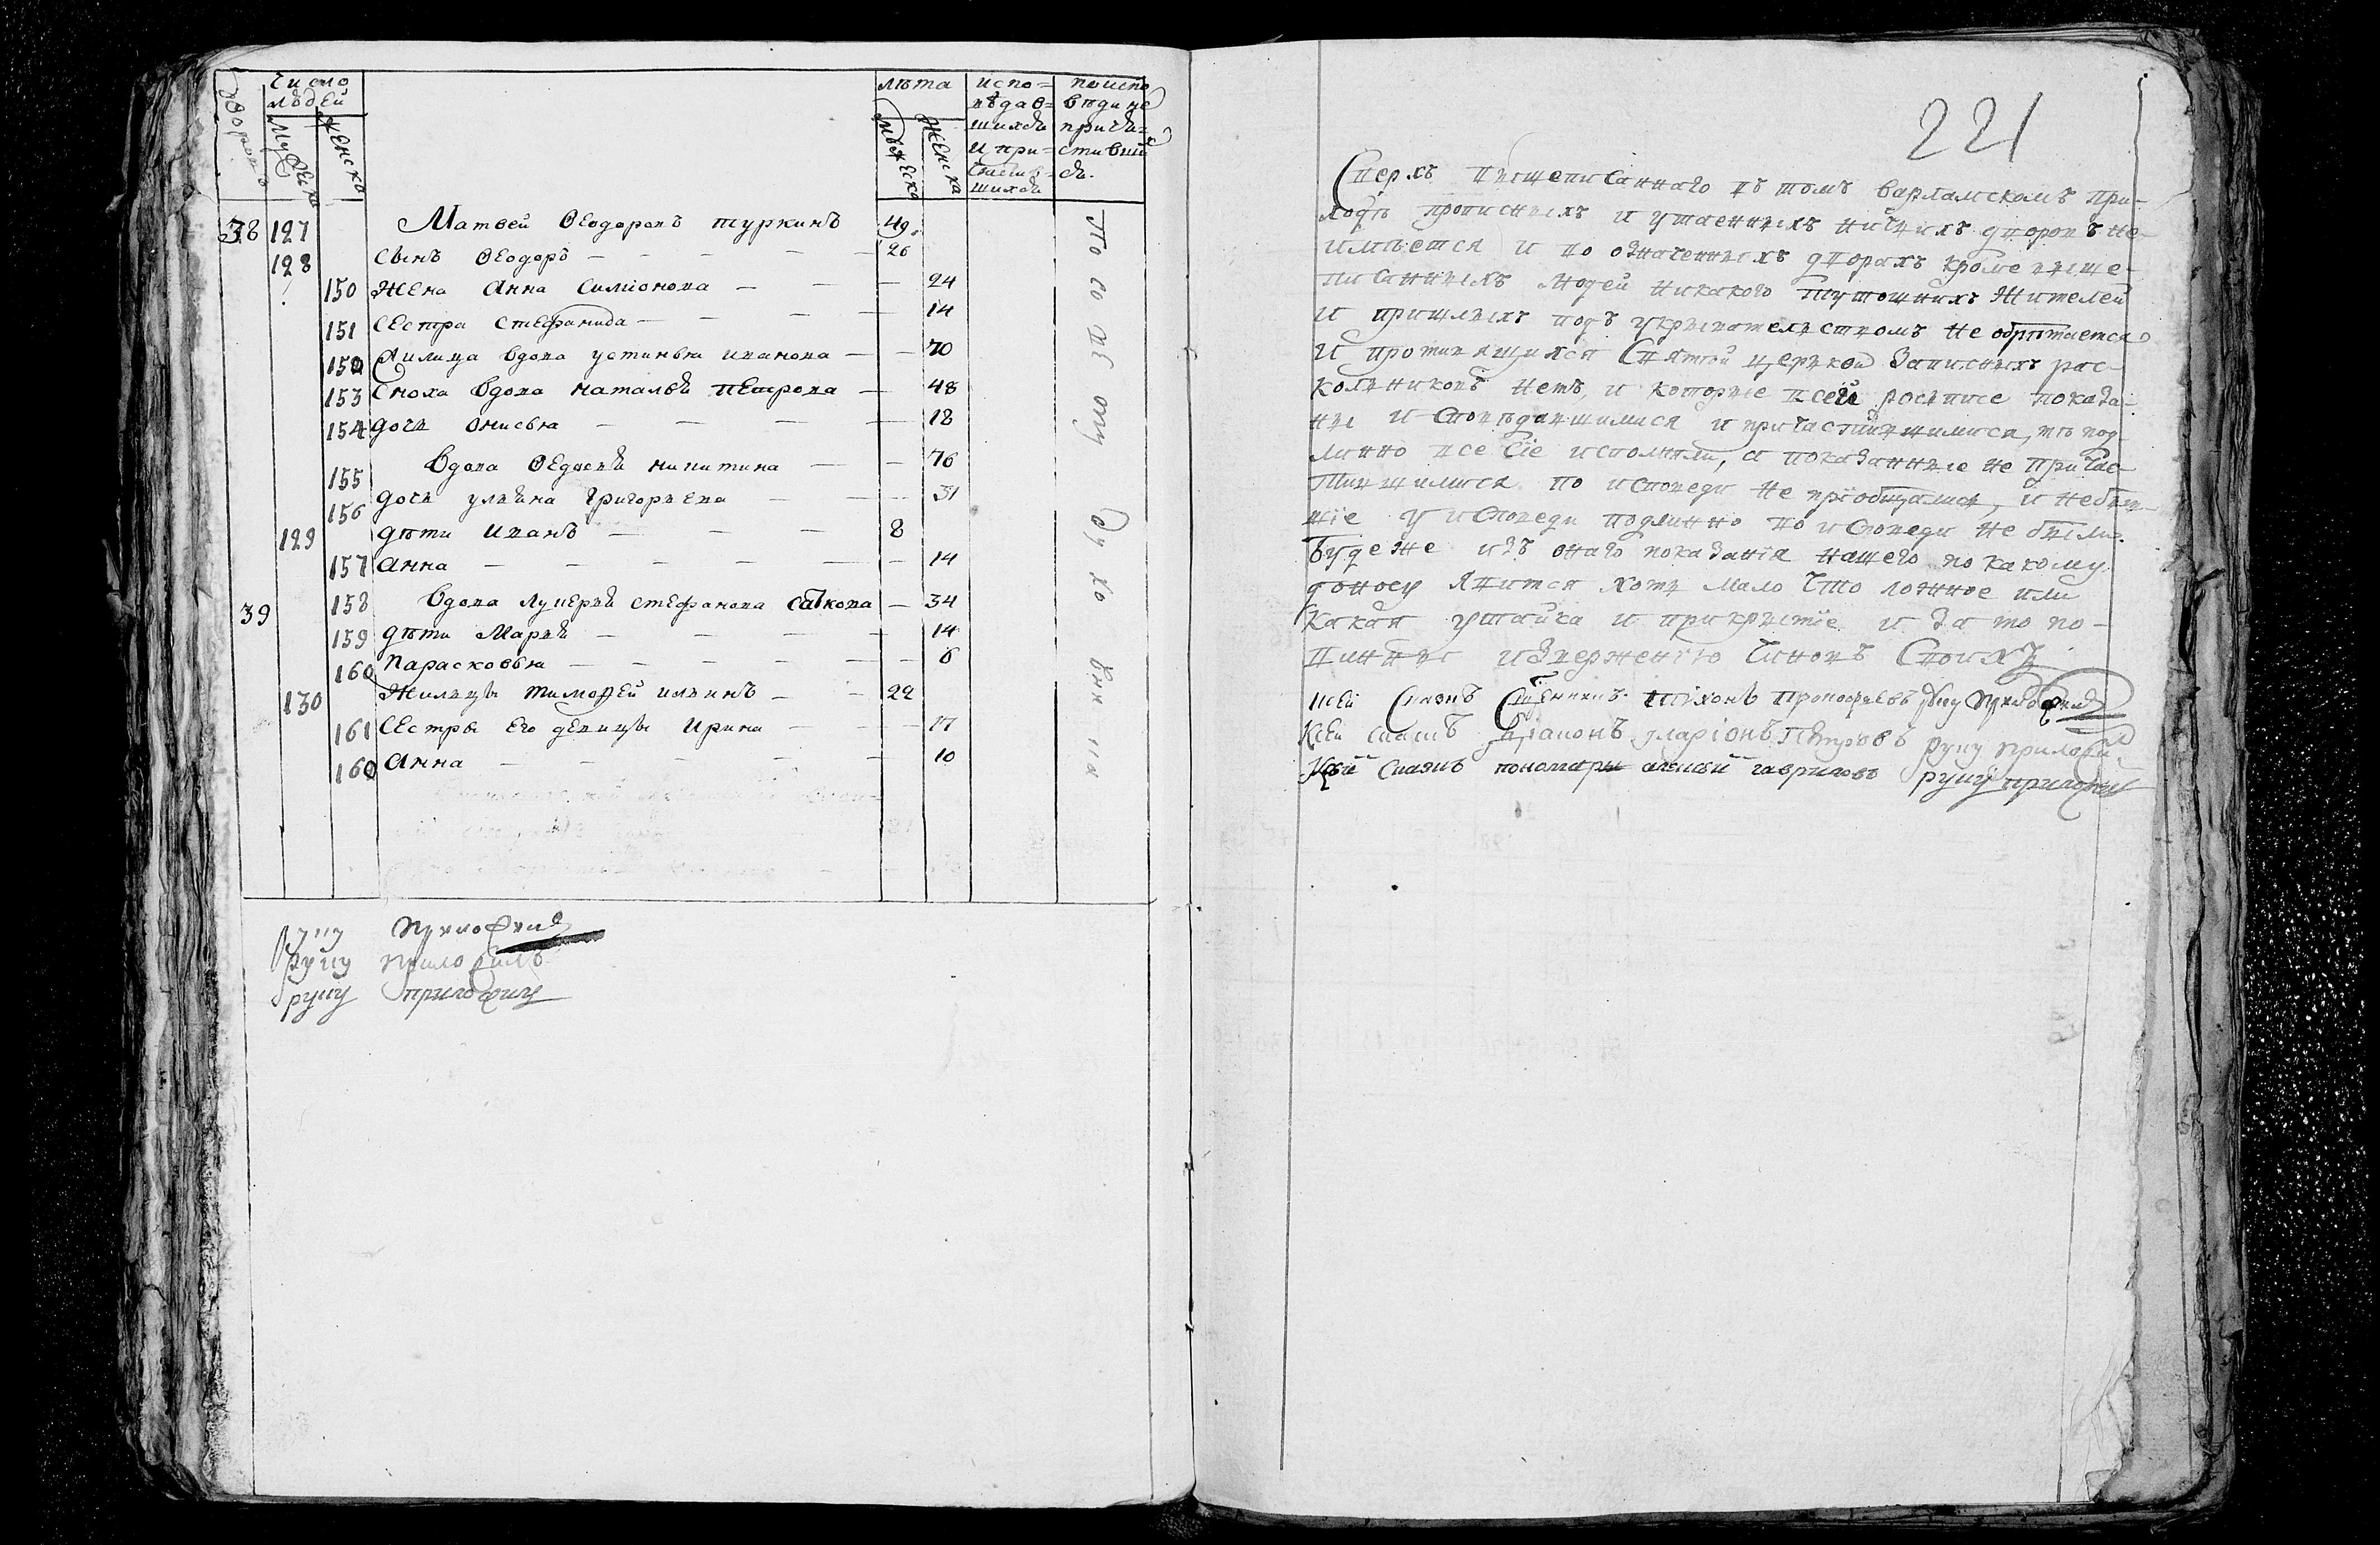 число людей
дворовъ
мужеска
женска
лѣта
мужеска
женска
испо=
вѣдав=
шихся
и при=
частив=
шихся
по испо
веди не
прича=
стивши
ся.
38 127 Матвей Ѳеодоровъ туркинъ 49
128 сынъ Ѳеодоръ — 26
150 жена Анна Симионова — 24
151 сестра Стефанида — 14
152 вдова устинья иванова — 70
153 сноха вдова наталья петрова — 48
154 дочь Онисья — 18
155 Вдова Ѳедосья никитина — 76
156 дочь ульяна григорьева — 31
129 дѣти иванъ — 8
157 анна — 14
39 158 вдова лукерья стефанова — 34
159 дѣти Марья — 14
160 парасковья — 6
130 Жильцы тимоѳей ильинъ — 22
161 сестры его девицы ирина — 17
162 анна — 10
руку приложилъ
руку приложилъ
руку приложилъ
221
Сверхъ вышеписаннаго въ томъ варламскомъ при-
ходѣ прописныхъ и утаенныхъ ничьихъ дворовъ не
имѣется и во означенныхъ дворахъ кроме выше-
писанныхъ людей никакого тутошнихъ жителей
и пришлыхъ подъ укрывателством не обрѣтается
и противящихся святой церькви записныхъ рас-
кольниковъ нетъ, и которые в сей росписе показа-
ны исповѣдавшимися и причастившимися, тѣ под-
линно все сіе исполнили, а показанные не причас-
тившимися по исповеди не пріобщались, и небыв-
шіе у исповеди подлинно во исповеди не были.
Буде же изъ онаго показанія нашего по какому
доносу явится хотя мало что ложное или
какая утайка и прикрытіе и за то по-
винны изверженію чиновъ своихъ
Священникъ тихонъ прокофьевъ руку приложилъ
діаконъ иларіонъ петровъ руку приложи
пономарь гавриловъ руку приложилъ